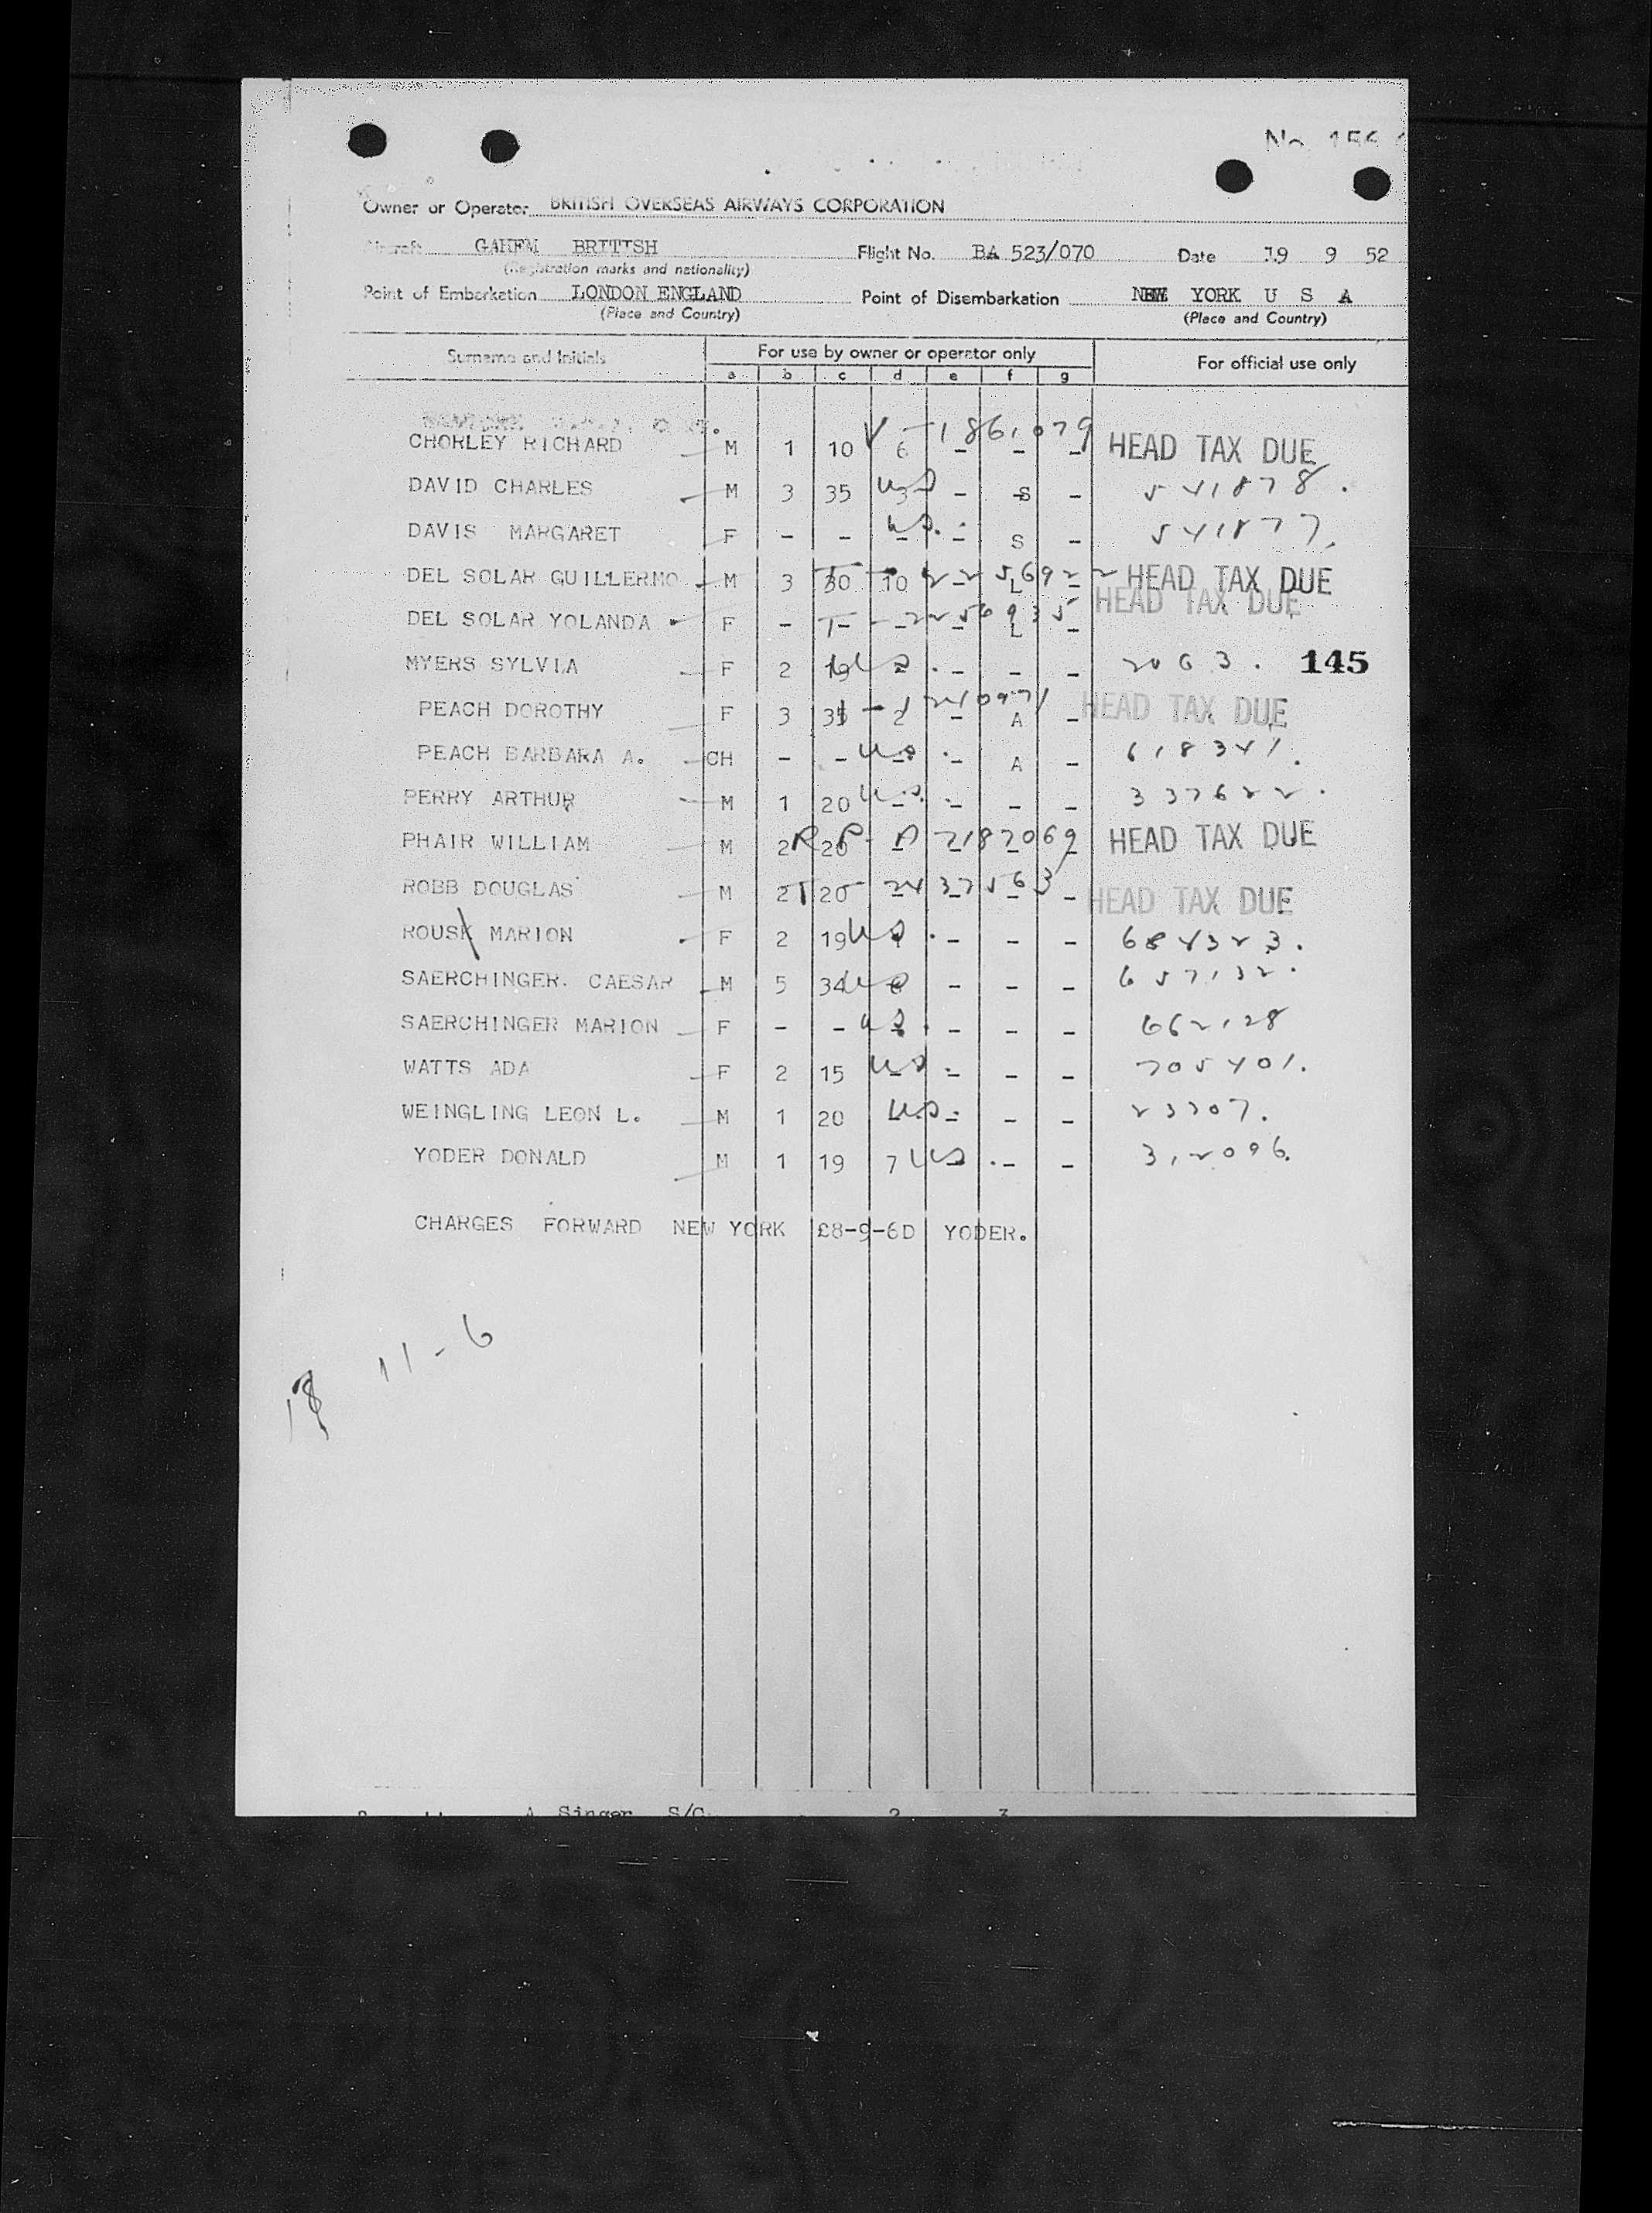 No 155
Owner or Operator BRITISH OVERSEAS AIRWAYS CORPORATION
Aircraft GAHEM BRITISH Flight No. BA 523/070 Date 19 9 52
(Registration marks and nationality)
Point of Embarkation LONDON ENGLAND Point of Disembarkation NEW YORK U S A
(Place and Country) (Place and Country)
Surname and Initials For use by owner or operator only For official use only
a b c d e f g
CHORLEY RICHARD M 1 10 6 - - - V-1861079 HEAD TAX DUE
DAVID CHARLES M 3 35 3 US - S - 541878.
DAVIS MARGARET F - - - US. - S - 541877.
DEL SOLAR GUILLERMO M 3 30 10 - L - 2256922 HEAD TAX DUE
DEL SOLAR YOLANDA F - - - - L - T-2256935 HEAD TAX DUE
MYERS SYLVIA F 2 19 US. - - - 2063. 145
PEACH DOROTHY F 3 35 2 - A - HEAD TAX DUE
PEACH BARBARA A. CH - - - US. - A - 618341.
PERRY ARTHUR M 1 20 - US. - - - 337622.
PHAIR WILLIAM M 2 20 - - - - RP-A 2182069 HEAD TAX DUE
ROBB DOUGLAS M 2 20 - - - - T-2437563 HEAD TAX DUE
ROUSK MARION F 2 19 US. - - - 684323.
SAERCHINGER. CAESAR M 5 34 US - - - 657132.
SAERCHINGER MARION F - - US. - - - 662128
WATTS ADA F 2 15 - US. - - - 705401.
WEINGLING LEON L. M 1 20 US. - - - 23307.
YODER DONALD M 1 19 7 US. - - 312096.
CHARGES FORWARD NEW YORK £8-9-6D YODER.
11-6
18
A Singer S/C 2 3